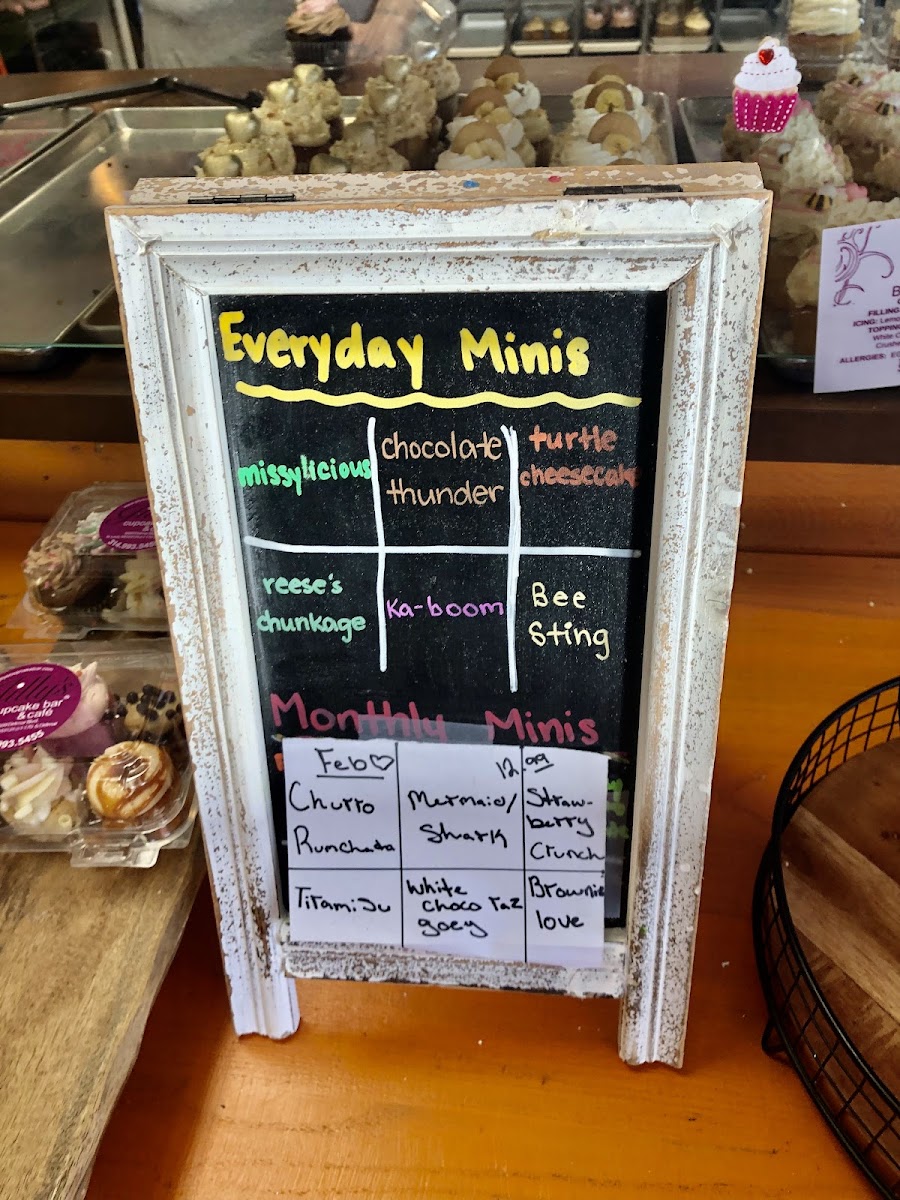 Everyday Minis
missylicious
chocolate
thunder
turtle
cheesecake
reese's
chunkage
Ka-boom
Bee
Sting
Monthly Minis
Feb
12.99
Churro
Rumchata
Mermaid/
Shark
Straw-
berry
Crunch
Tiramisu
White
choco raz
goey
Brownie
love
cupcake bar
& café
993.5455
cupcake
& café
314.993.5455
FILLING
ICING: Lemo
TOPPING
White C
Crushe
ALLERGIES: